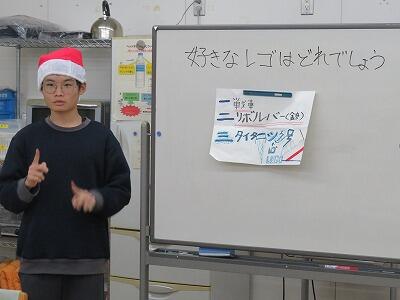 好きなレゴはどれでしょう
一 戦車
二 リボルバー(銃)
三 タイタニック号